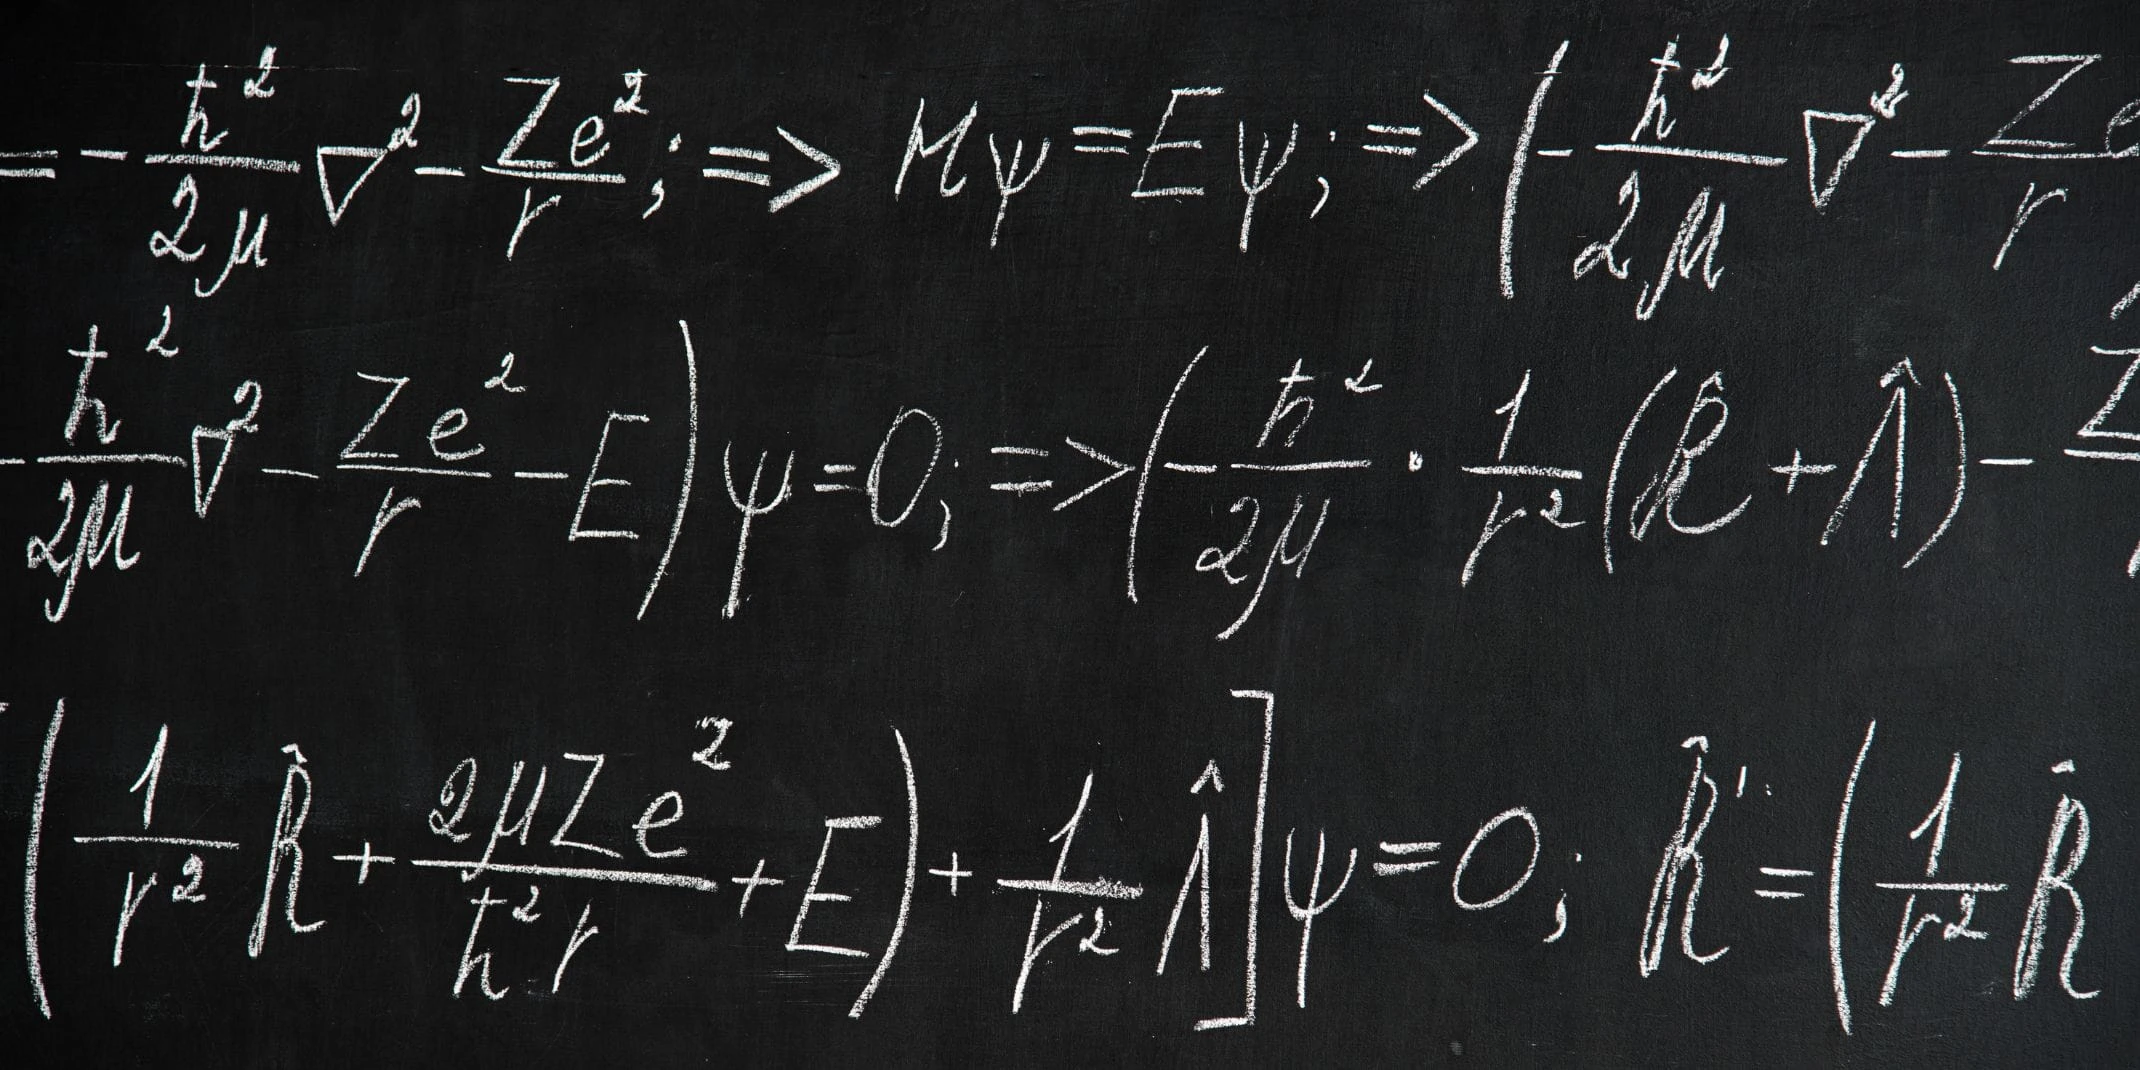 = - ħ²/2μ ∇² - Ze²/r ; => Hψ = Eψ; => (- ħ²/2μ ∇² - Ze/r
- ħ²/2μ ∇² - Ze²/r - E) ψ = 0; => (- ħ²/2μ · 1/r² (R̂ + Λ̂) - Z
(1/r² R̂ + 2μZe²/ħ²r + E) + 1/r² Λ̂] ψ = 0; R̂' = (1/r² R̂